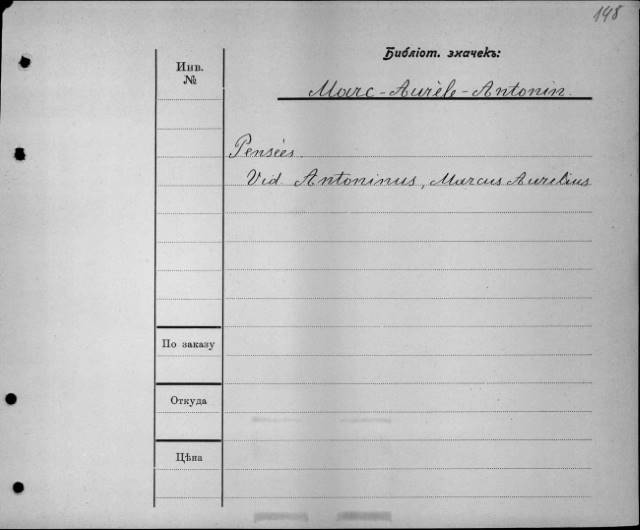 148
Библіот. значекъ:
Инв.
№
Marc-Aurèle-Antonin.
Pensées.
Vid. Antoninus, Marcus Aurelius
По заказу
Откуда
Цѣна